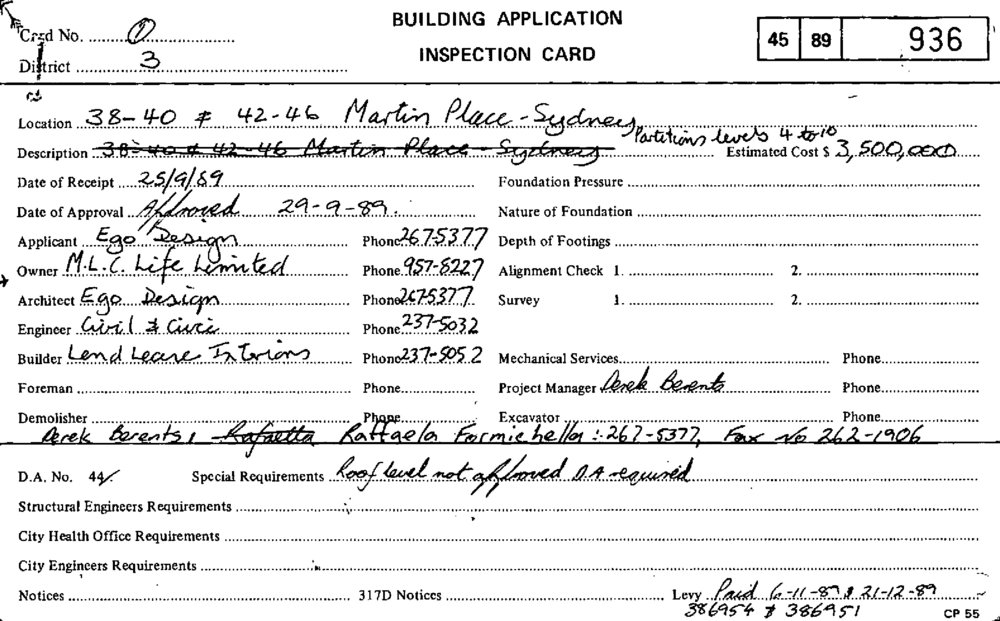 BUILDING APPLICATION
INSPECTION CARD
45 89 936
Card No. 0
District 3
Location 38-40 & 42-46 Martin Place - Sydney
Partitions levels 4 to 10
Description 38-40 & 42-46 Martin Place - Sydney Estimated Cost $ 3,500,000
Date of Receipt 25/9/89 Foundation Pressure
Date of Approval Approved 29-9-89. Nature of Foundation
Applicant Ego Design Phone 267-5377 Depth of Footings
Owner M.L.C. Life Limited Phone 957-8227 Alignment Check 1. 2.
Architect Ego Design Phone 267-5377 Survey 1. 2.
Engineer Civil & Civic Phone 237-5032
Builder Lend Lease Interiors Phone 237-5052 Mechanical Services Phone
Foreman Phone Project Manager Derek Berents Phone
Demolisher Phone Excavator Phone
Derek Berents, Rafaella Raffaela Formichella :- 267-5377, Fax No 262-1906
D.A. No. 44/ Special Requirements Roof level not approved D.A required
Structural Engineers Requirements
City Health Office Requirements
City Engineers Requirements
Notices 317D Notices Levy Paid 6-11-89 & 21-12-89
386954 & 386951
CP 55